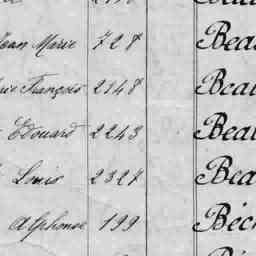 Jean Marie 728 Bea
François 2148 Beau
Edouard 2243 Beau
Louis 2327 Bea
Alphonse 199 Béc